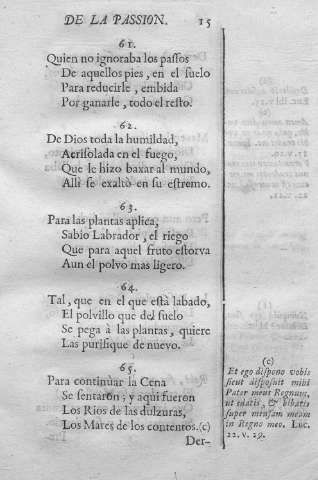 DE LA PASSION. 15
61.
Quien no ignoraba los paſſos
De aquellos pies, en el ſuelo
Para reducirle, embida
Por ganarle, todo el reſto.
62.
De Dios toda la humildad,
Acriſolada en el fuego,
Que le hizo baxar al mundo,
Alli ſe exaltò en ſu eſtremo.
63.
Para las plantas aplica,
Sabio Labrador, el riego
Que para aquel fruto eſtorva
Aun el polvo mas ligero.
64.
Tal, que en el que eſtà labado,
El polvillo que del ſuelo
Se pega à las plantas, quiere
Las purifique de nuevo.
65.
Para continuar la Cena
Se ſentaron; y aqui fueron
Los Rios de las dulzuras,
Los Mares de los contentos.(c)
Der-
(c)
Et ego diſpono vobis
ſicut diſpoſuit mihi
Pater meus Regnum,
ut edatis, & bibatis
ſuper menſam meam
in Regno meo. Luc.
22. v. 29.